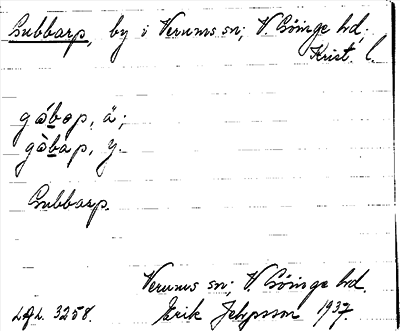 Gubbarp, by i Verums sn; V. Göinge hd;
Krist. l.
gòbəp, ä;
gòbap, y.
Gubbarp.
Verums sn; V. Göinge hd.
LAL. 3258. Erik Jeppsson 1937